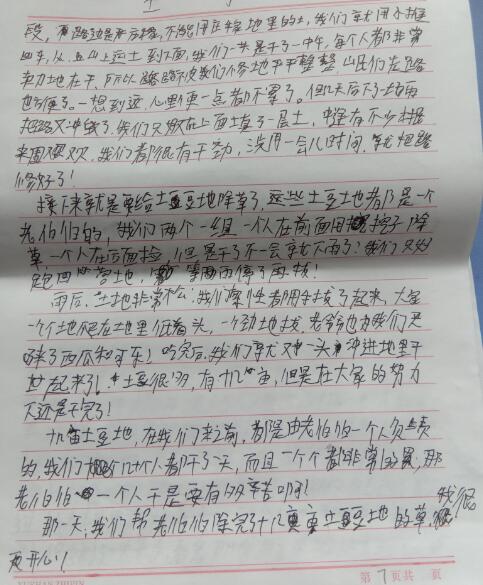 段，路边是斜坡，不能用庄稼地里的土，我们就用小推
车，从上运土到下面，我们一共是干了一中午，每个人都非常
卖力地在干，所以路被我们修地平平整整，山民们走路
也方便了。一想到这，心里更一点都不累了。但几天后下了一场雨
把路又冲毁了，我们又在上面填了一层土，还有不少村民
来围观，我们都很有干劲，没用一会儿时间，就把路
修好了！
接下来就是要给土豆地除草了，这些土豆地都是一个
老伯伯的，我们两个一组，一个人在前面用锄子除
草，一个人在后面捡，但是干了不一会就下雨了！我们只好
跑回营地，等雨停了再拔！
雨后，土地非常松，我们索性都用手拔了起来，大家
一个个地爬在地里低着头，一个劲地拔，老爷爷也为我们买
来了西瓜和可乐！吃完后，我们就又一头冲进地里干
起来了！土豆很多，有十几亩，但是在大家的努力
下还是干完了！
十几亩土豆地，在我们来之前，都是由老伯伯一个人负责
的，我们几十个人都干了一天，而且一个个都非常的累，那
老伯伯一个人干是要有多辛苦呀！
那一天，我们帮老伯伯除完了十几亩土豆地的草，我很
开心！
第7页共 页